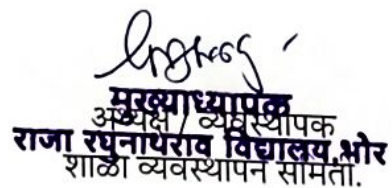 मुख्याध्यापक
अध्यक्ष / व्यवस्थापक
राजा रघुनाथराव विद्यालय, भोर
शाळा व्यवस्थापन समिती.